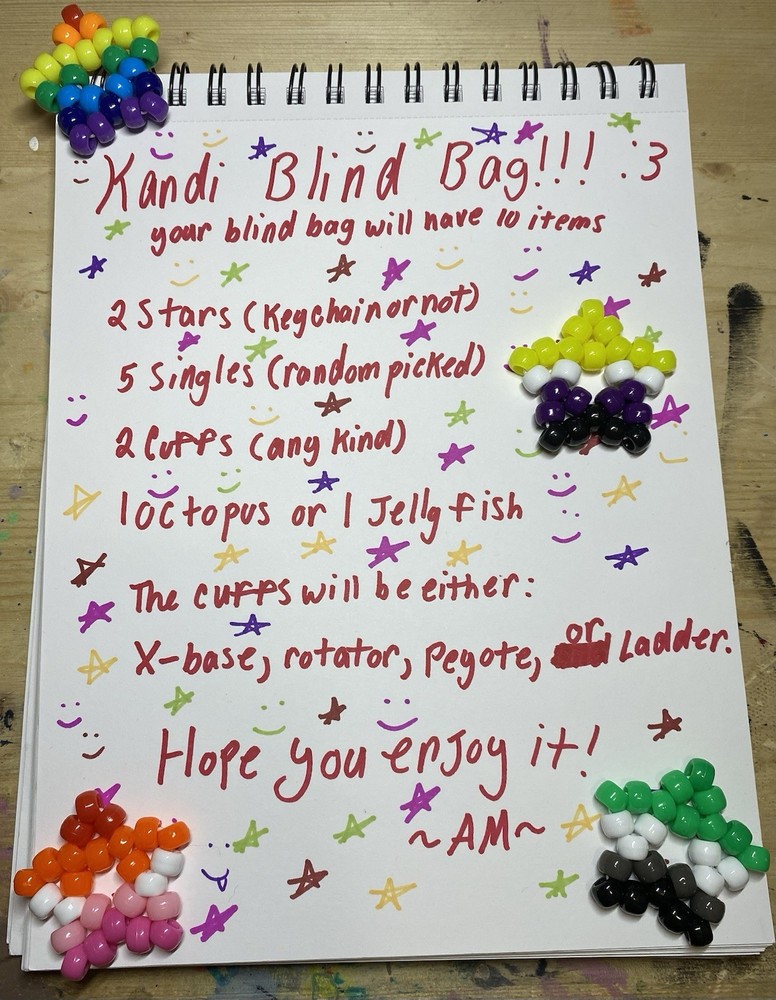 Kandi Blind Bag!!! :3
your blind bag will have 10 items
2 Stars (Keychain or not)
5 Singles (random picked)
2 Cuffs (any kind)
1 Octopus or 1 Jellyfish
The cuffs will be either:
X-base, rotator, Peyote, or Ladder.
Hope you enjoy it!
~AM~